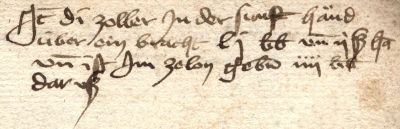 It di zoller In der sunft händ
über ein bracht lj lb vnd ij ß
vnd ist Im zelon gebn iiij lb
dar vß